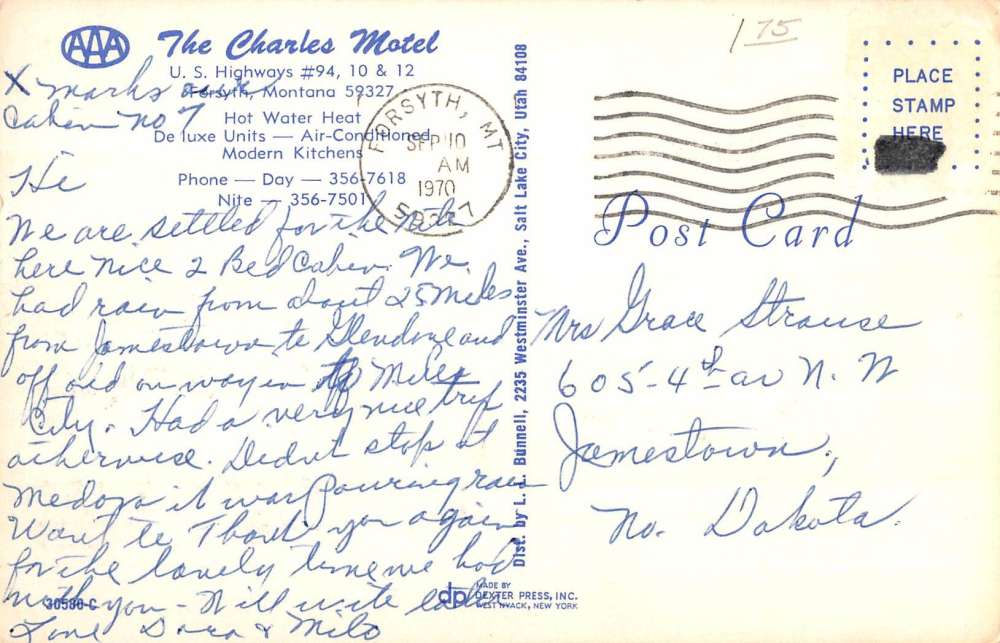 AAA The Charles Motel
U. S. Highways #94, 10 & 12
Forsyth, Montana 59327
Hot Water Heat
De luxe Units — Air-Conditioned
Modern Kitchens
Phone — Day — 356-7618
Nite — 356-7501
X marks our
Cabin no 7
Hi
We are settled for the Nite
here Nice 2 Bed Cabin. We
had rain from about 25 Miles
from Jamestown to Glendive and
off and on way in to Miles
City. Had a very nice trip
otherwise. Didnt stop at
Medora it was Pouring rain
Want to Thank you again
for the lovely time we had
with you - Will write later
Love Dora & Milo
30580-C
FORSYTH, MT
SEP 10
AM
1970
59327
Dist. by L. L. Bunnell, 2235 Westminster Ave., Salt Lake City, Utah 84108
dp MADE BY
DEXTER PRESS, INC.
WEST NYACK, NEW YORK
1 75
PLACE
STAMP
HERE
Post Card
Mrs Grace Strause
605-4th av N. W
Jamestown,
No. Dakota.